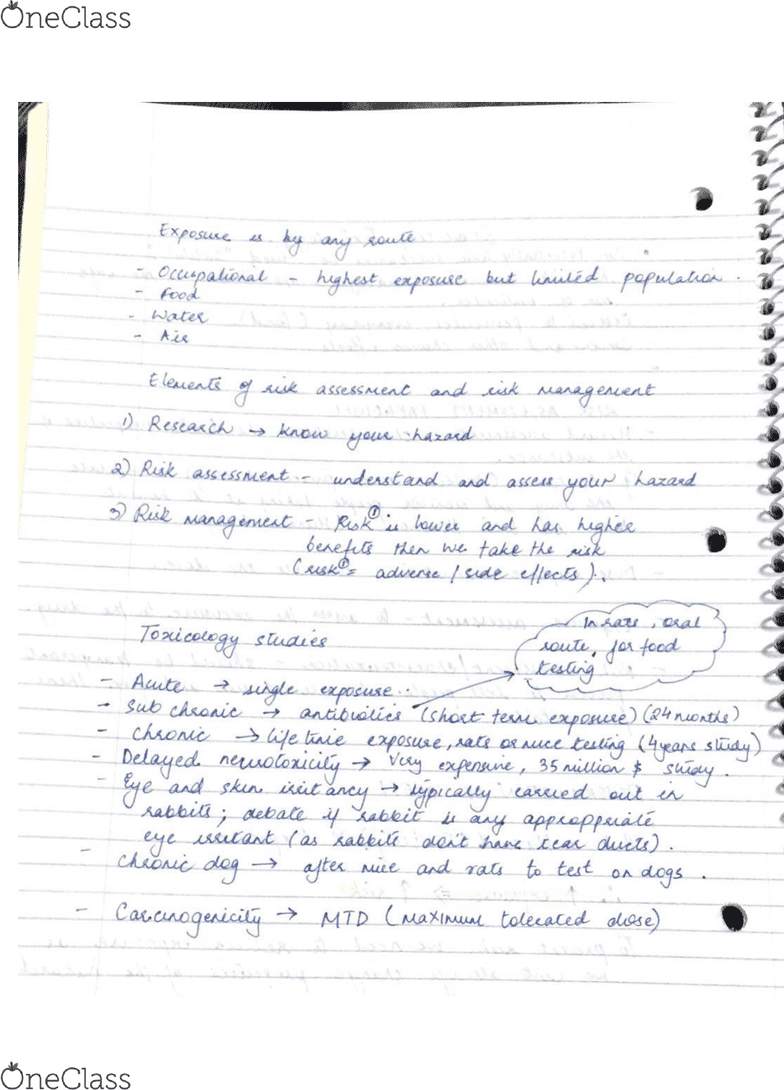 OneClass
Exposure is by any route
- Occupational - highest exposure but limited population.
- Food
- Water
- Air
Elements of risk assessment and risk management
1) Research → know your hazard
2) Risk assessment - understand and assess your hazard
3) Risk management - Risk① is lower and has higher
benefits then we take the risk
(risk① = adverse / side effects).
In rats, oral
route, for food
testing
Toxicology studies
- Acute → single exposure.
- Sub chronic → antibiotics (short term exposure) (24 months)
- chronic → life time exposure, rats or mice testing (4 years study)
- Delayed neurotoxicity → Very expensive, 35 million $ study.
- Eye and skin irritancy → typically carried out in
rabbits; debate if rabbit is any appropriate
eye irritant (as rabbits don't have tear ducts).
- chronic dog → after mice and rats to test on dogs.
- Carcinogenicity → MTD (maximum tolerated dose)
OneClass